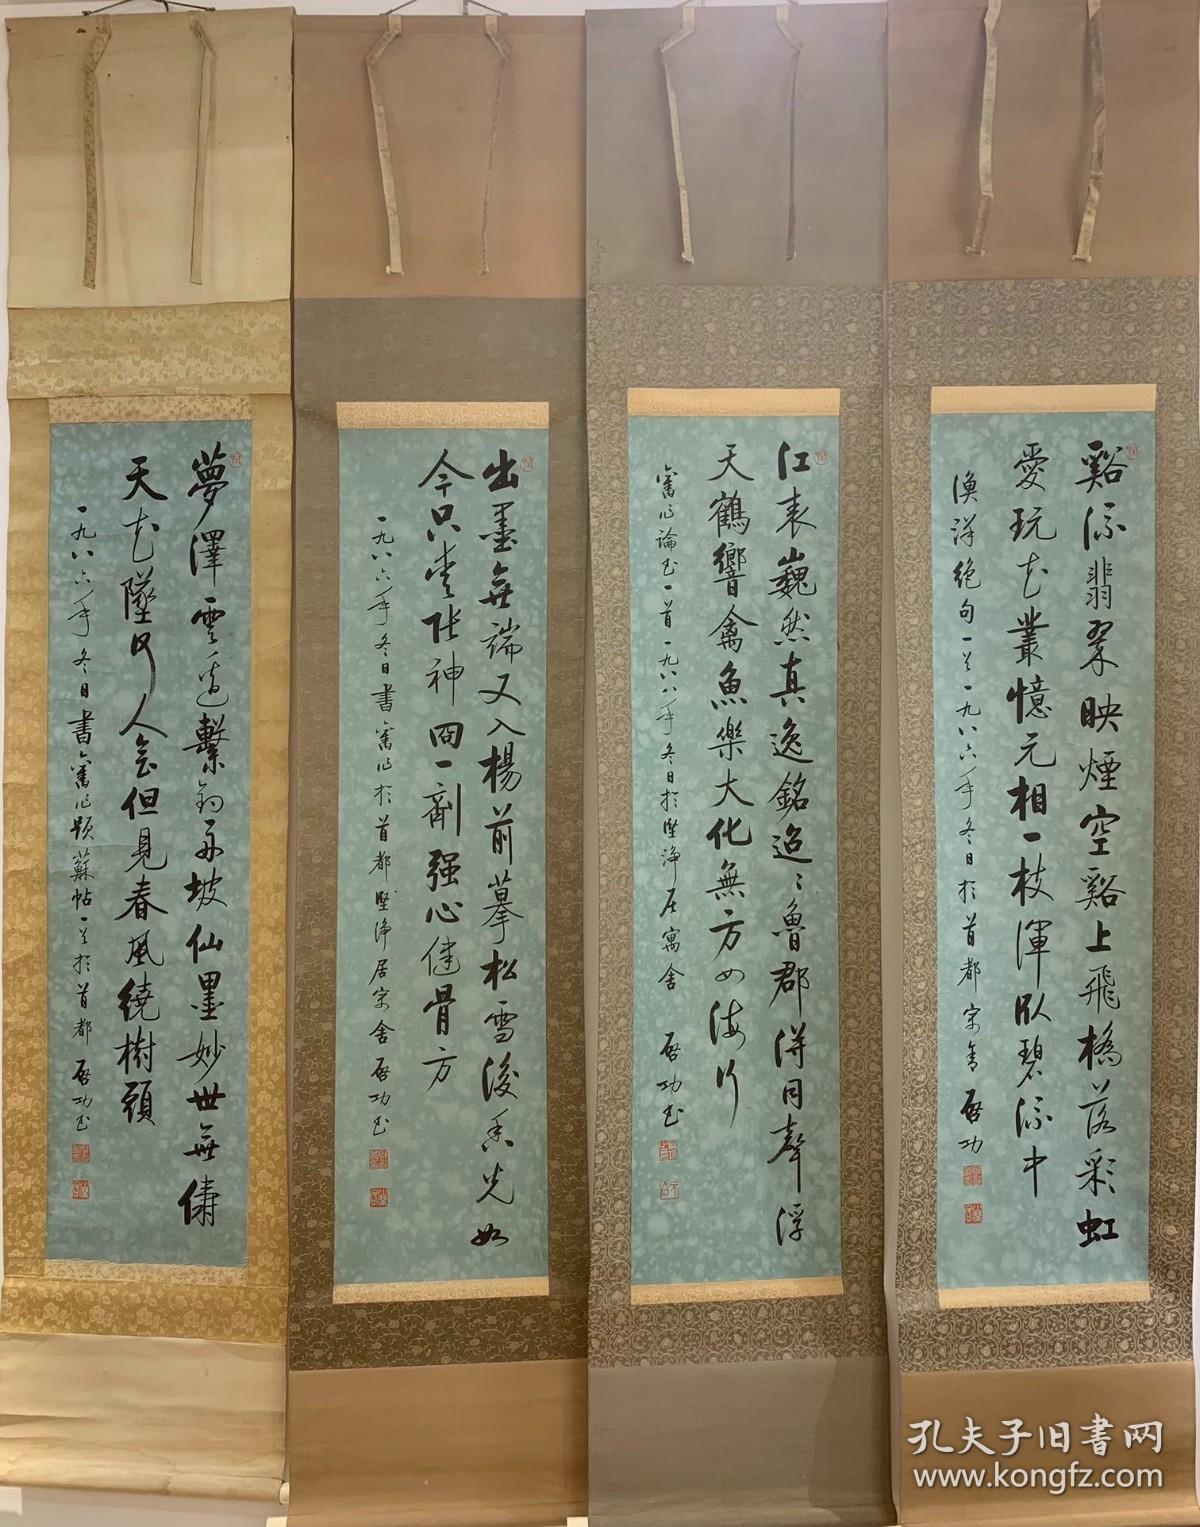 谿流翡翠映煙空谿上飛橋落彩虹
愛玩花叢憶元相一枝渾臥碧流中
漁洋絕句一首一九八六年冬日於首都寓舍 啓功
江表巍然真逸銘迢〻魯郡得同聲浮
天鶴響禽魚樂大化無方四海行
舊作論書一首一九八八年冬日於堅淨居寓舍 啓功書
出墨無端又入楊前摹松雪後香光如
今只愛張神冏一劑强心健骨方
一九八六年冬日書舊作於首都堅淨居寓舍 啓功書
夢澤雲邊繫釣舟坡仙墨妙世無儔
天花墜處何人會但見春風繞樹頭
一九八六年冬日書舊作題蘇帖一首於首都 啓功書
孔夫子旧書网
www.kongfz.com